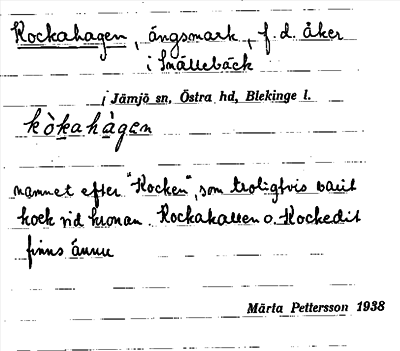 Kockahagen, ängsmark, f. d. åker
i Smällebäck
i Jämjö sn, Östra hd, Blekinge l.
kòkahàgen
namnet efter "Kocken", som troligtvis varit
kock vid kronan. Kockakallen o. Kockedit
finns ännu
Märta Pettersson 1938